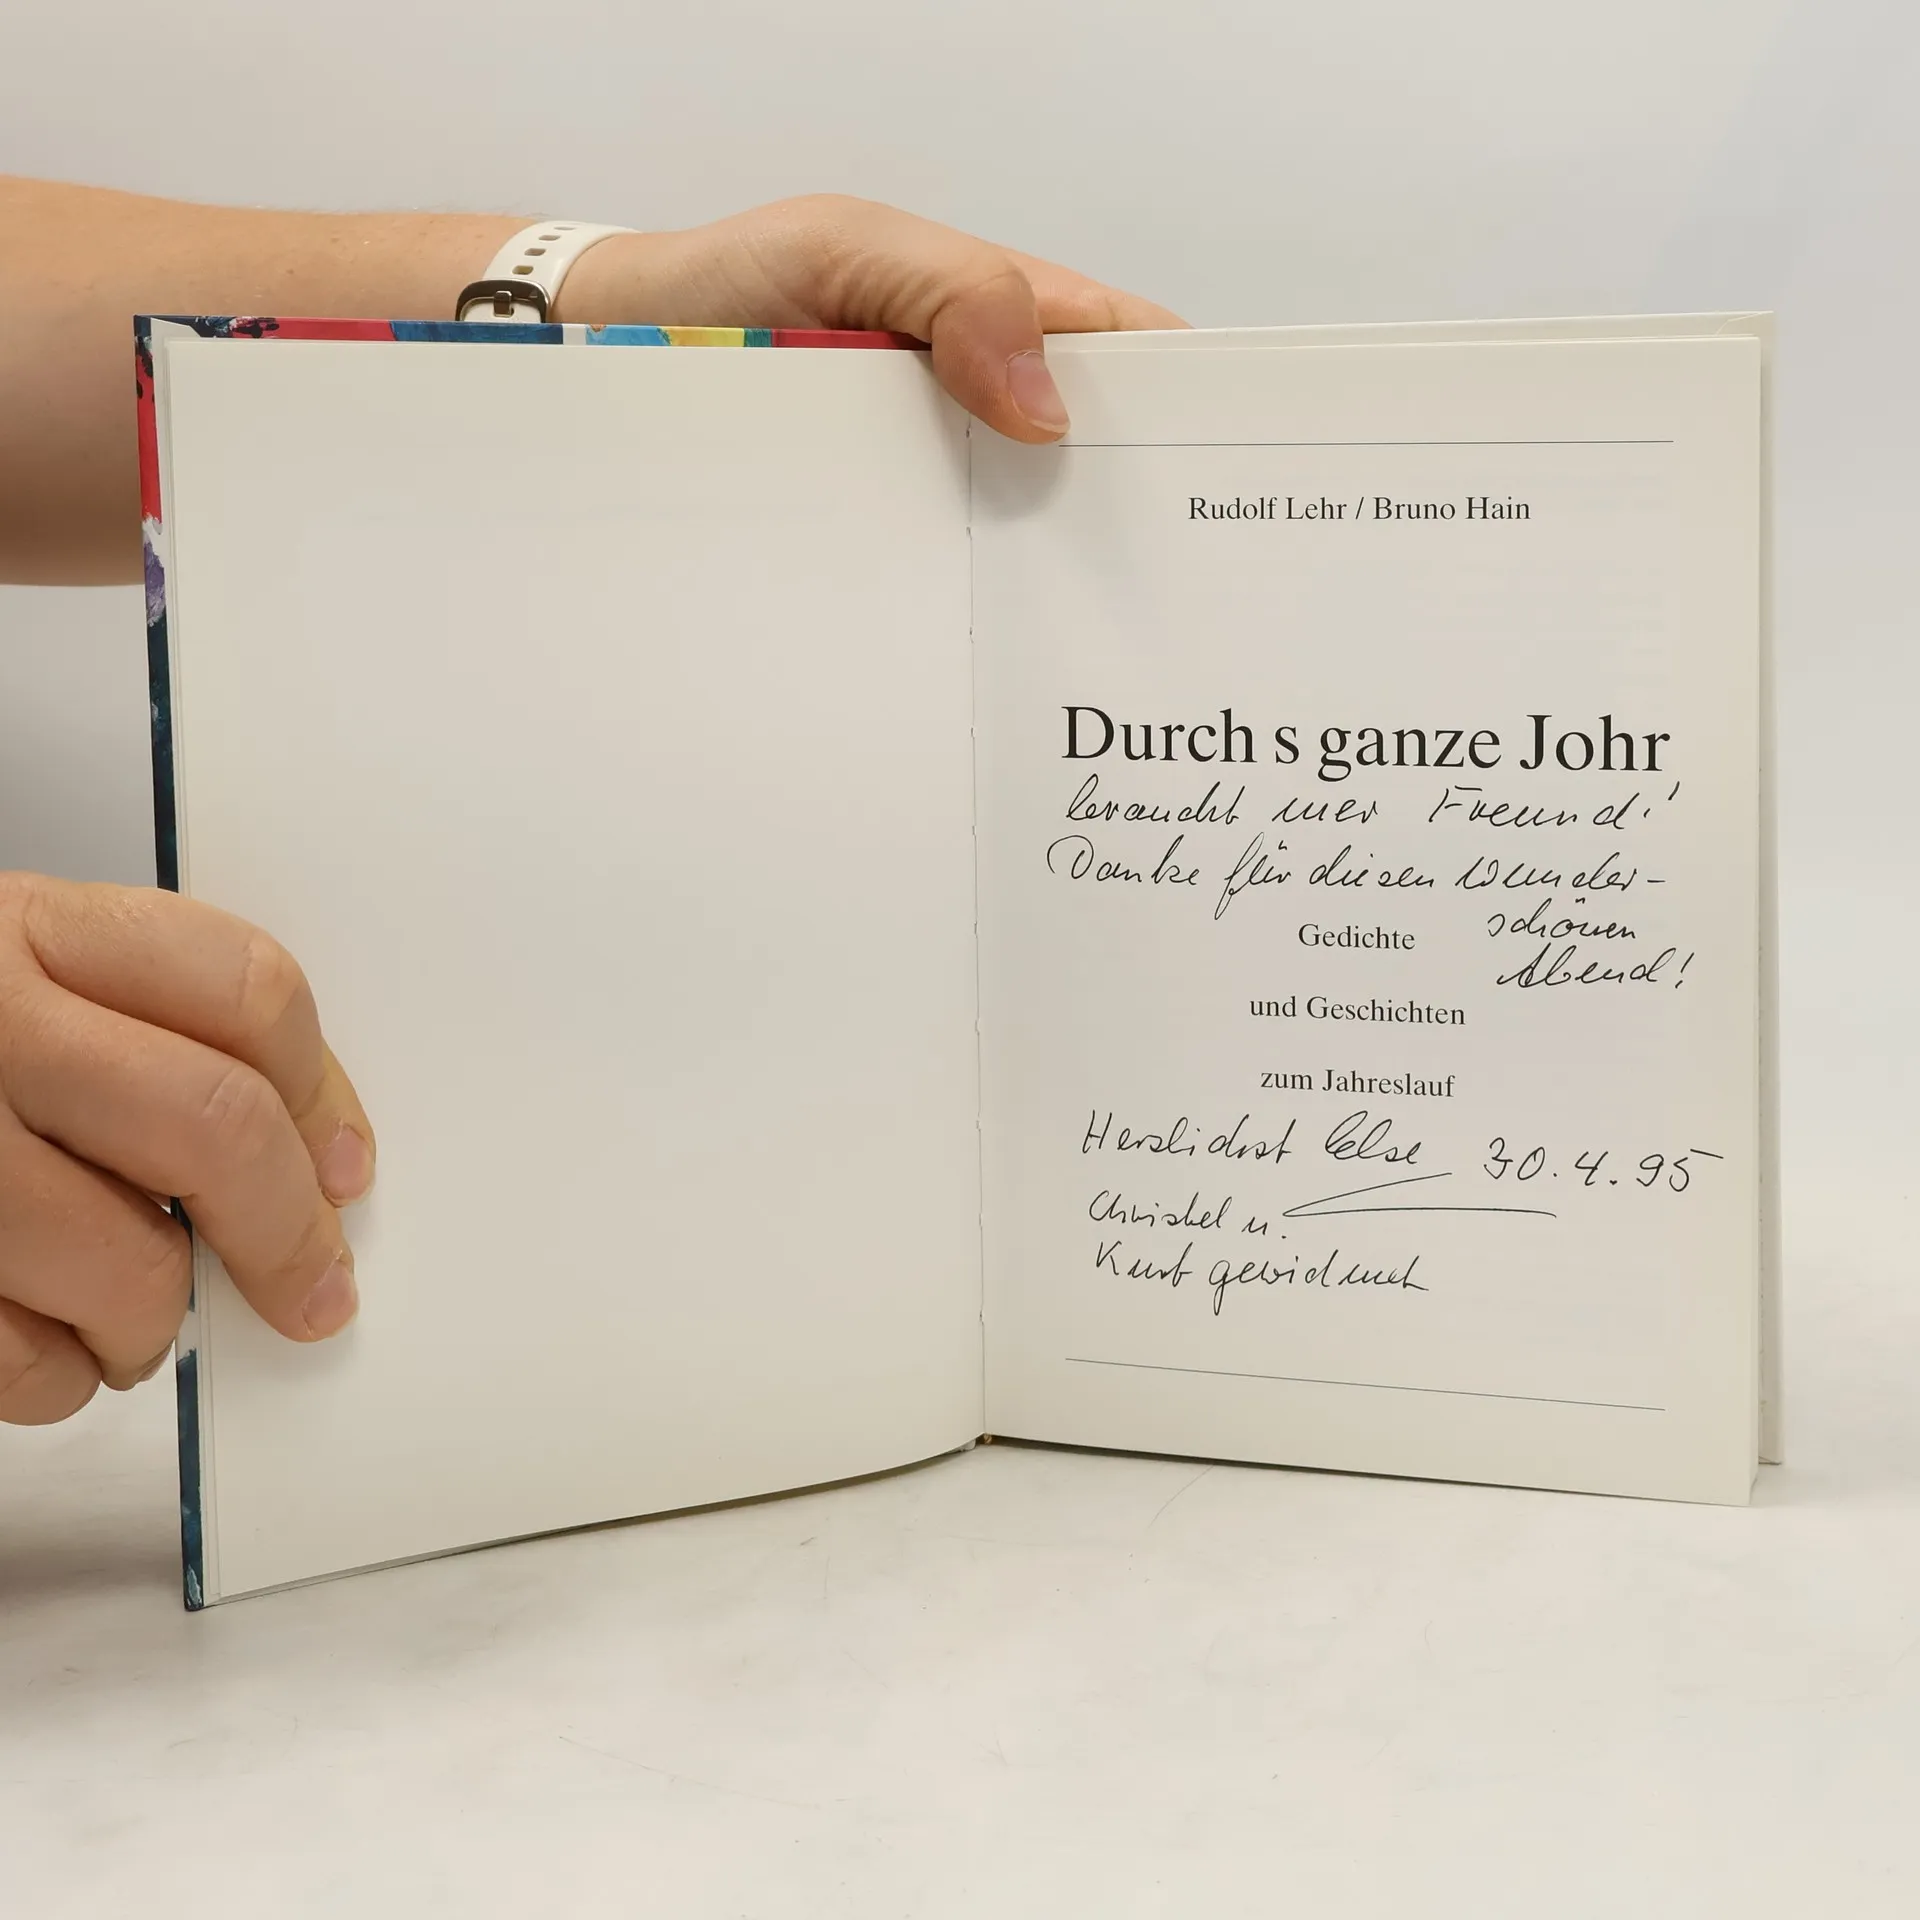 Rudolf Lehr / Bruno Hain
Durch s ganze Johr
braucht mer Freund!
Danke für diesen wunder-
schönen
Gedichte
Abend!
und Geschichten
zum Jahreslauf
Herzlichst Else 30.4.95
Christel u.
Kurt gewidmet